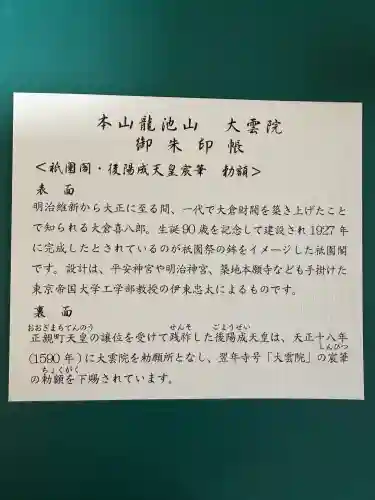 本山龍池山　大雲院
御朱印帳
＜祇園閣・後陽成天皇宸筆　勅額＞
表　面
明治維新から大正に至る間、一代で大倉財閥を築き上げたこと
で知られる大倉喜八郎。生誕90歳を記念して建設され1927年
に完成したとされているのが祇園祭の鉾をイメージした祇園閣
です。設計は、平安神宮や明治神宮、築地本願寺なども手掛けた
東京帝国大学工学部教授の伊東忠太によるものです。
裏　面
おおぎまちてんのう　せんそ　ごようぜい
正親町天皇の譲位を受けて践祚した後陽成天皇は、天正十八年
しんぴつ
(1590年)に大雲院を勅願所となし、翌年寺号「大雲院」の宸筆
ちょくがく
の勅額を下賜されています。